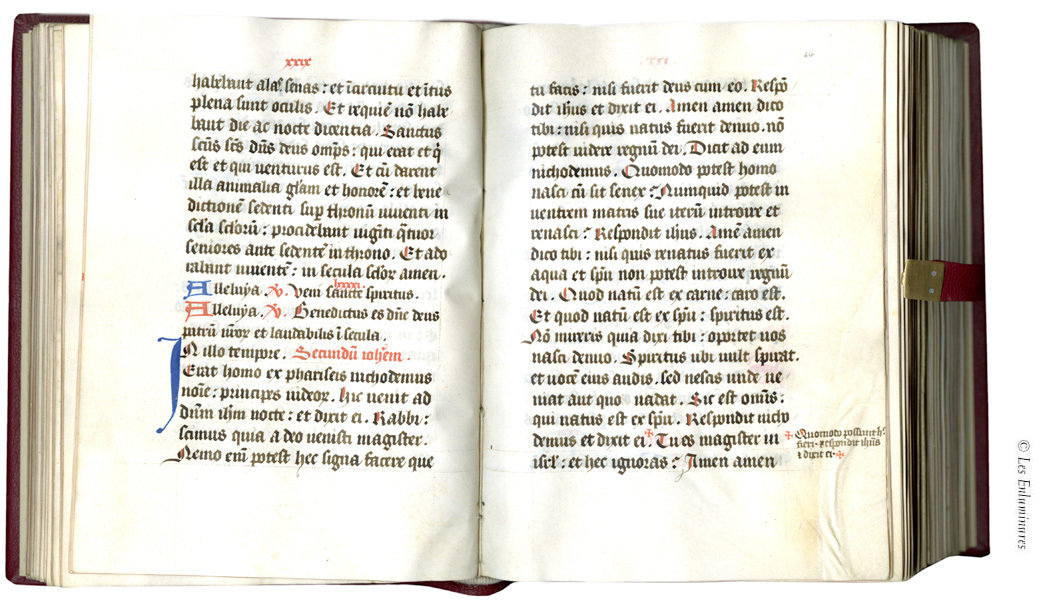 xxix
habebant alas senas : et ī circuitu et ītus
plena sunt oculis . Et requiē nō habe
bant die ac nocte dicentia . Sanctus
scūs scs dn̄s deus omps : qui erat et q̄
est et qui uenturus est . Et cū darent
illa animalia glam et honorē : et bene
dictionē sedenti sup thronū uiuenti in
scla sclorū : procidebant uiginti q̄tuor
seniores ante sedentē in throno . Et ado
rabant uiuentē : in secula sclor amen .
Alleluya . V . Veni sancte spiritus .
lxxxi
Alleluya . V . Benedictus es dn̄e deus
patrū nror et laudabilis ī secula .
In illo tempore . Secundū iohem .
Erat homo ex phariseis nichodemus
noīe : princeps iudeor . hic uenit ad
dn̄m ihm nocte : et dixit ei . Rabbi :
scimus quia a deo uenisti magister .
Nemo em̄ potest hec signa facere que
xxx
tu facis : nisi fuerit deus cum eo . Respō
dit ihus et dixit ei . Amen amen dico
tibi : nisi quis natus fuerit denuo . nō
potest uidere regnū dei . Dicit ad eum
nichodemus . Quomodo potest homo
nasci cū sit senex ? Nunquid potest in
uentrem matris sue iterū introire et
renasci ? Respondit ihus . Amē amen
dico tibi : nisi quis renatus fuerit ex
aqua et spū non potest introire regnū
dei . Quod natū est ex carne : caro est .
Et quod natū est ex spū : spiritus est .
Nō mireris quia dixi tibi : oportet uos
nasci denuo . Spiritus ubi uult spirat .
et uocē eius audis . sed nescis unde ue
niat aut quo uadat . Sic est omīs :
qui natus est ex spū . Respondit nicho
demus et dixit ei + . Tu es magister in
isrl : et hec ignoras ? Amen amen
+ Quomodo possunt h̄
fieri . respondit ihus
et dixit ei . +
© Les Enluminures